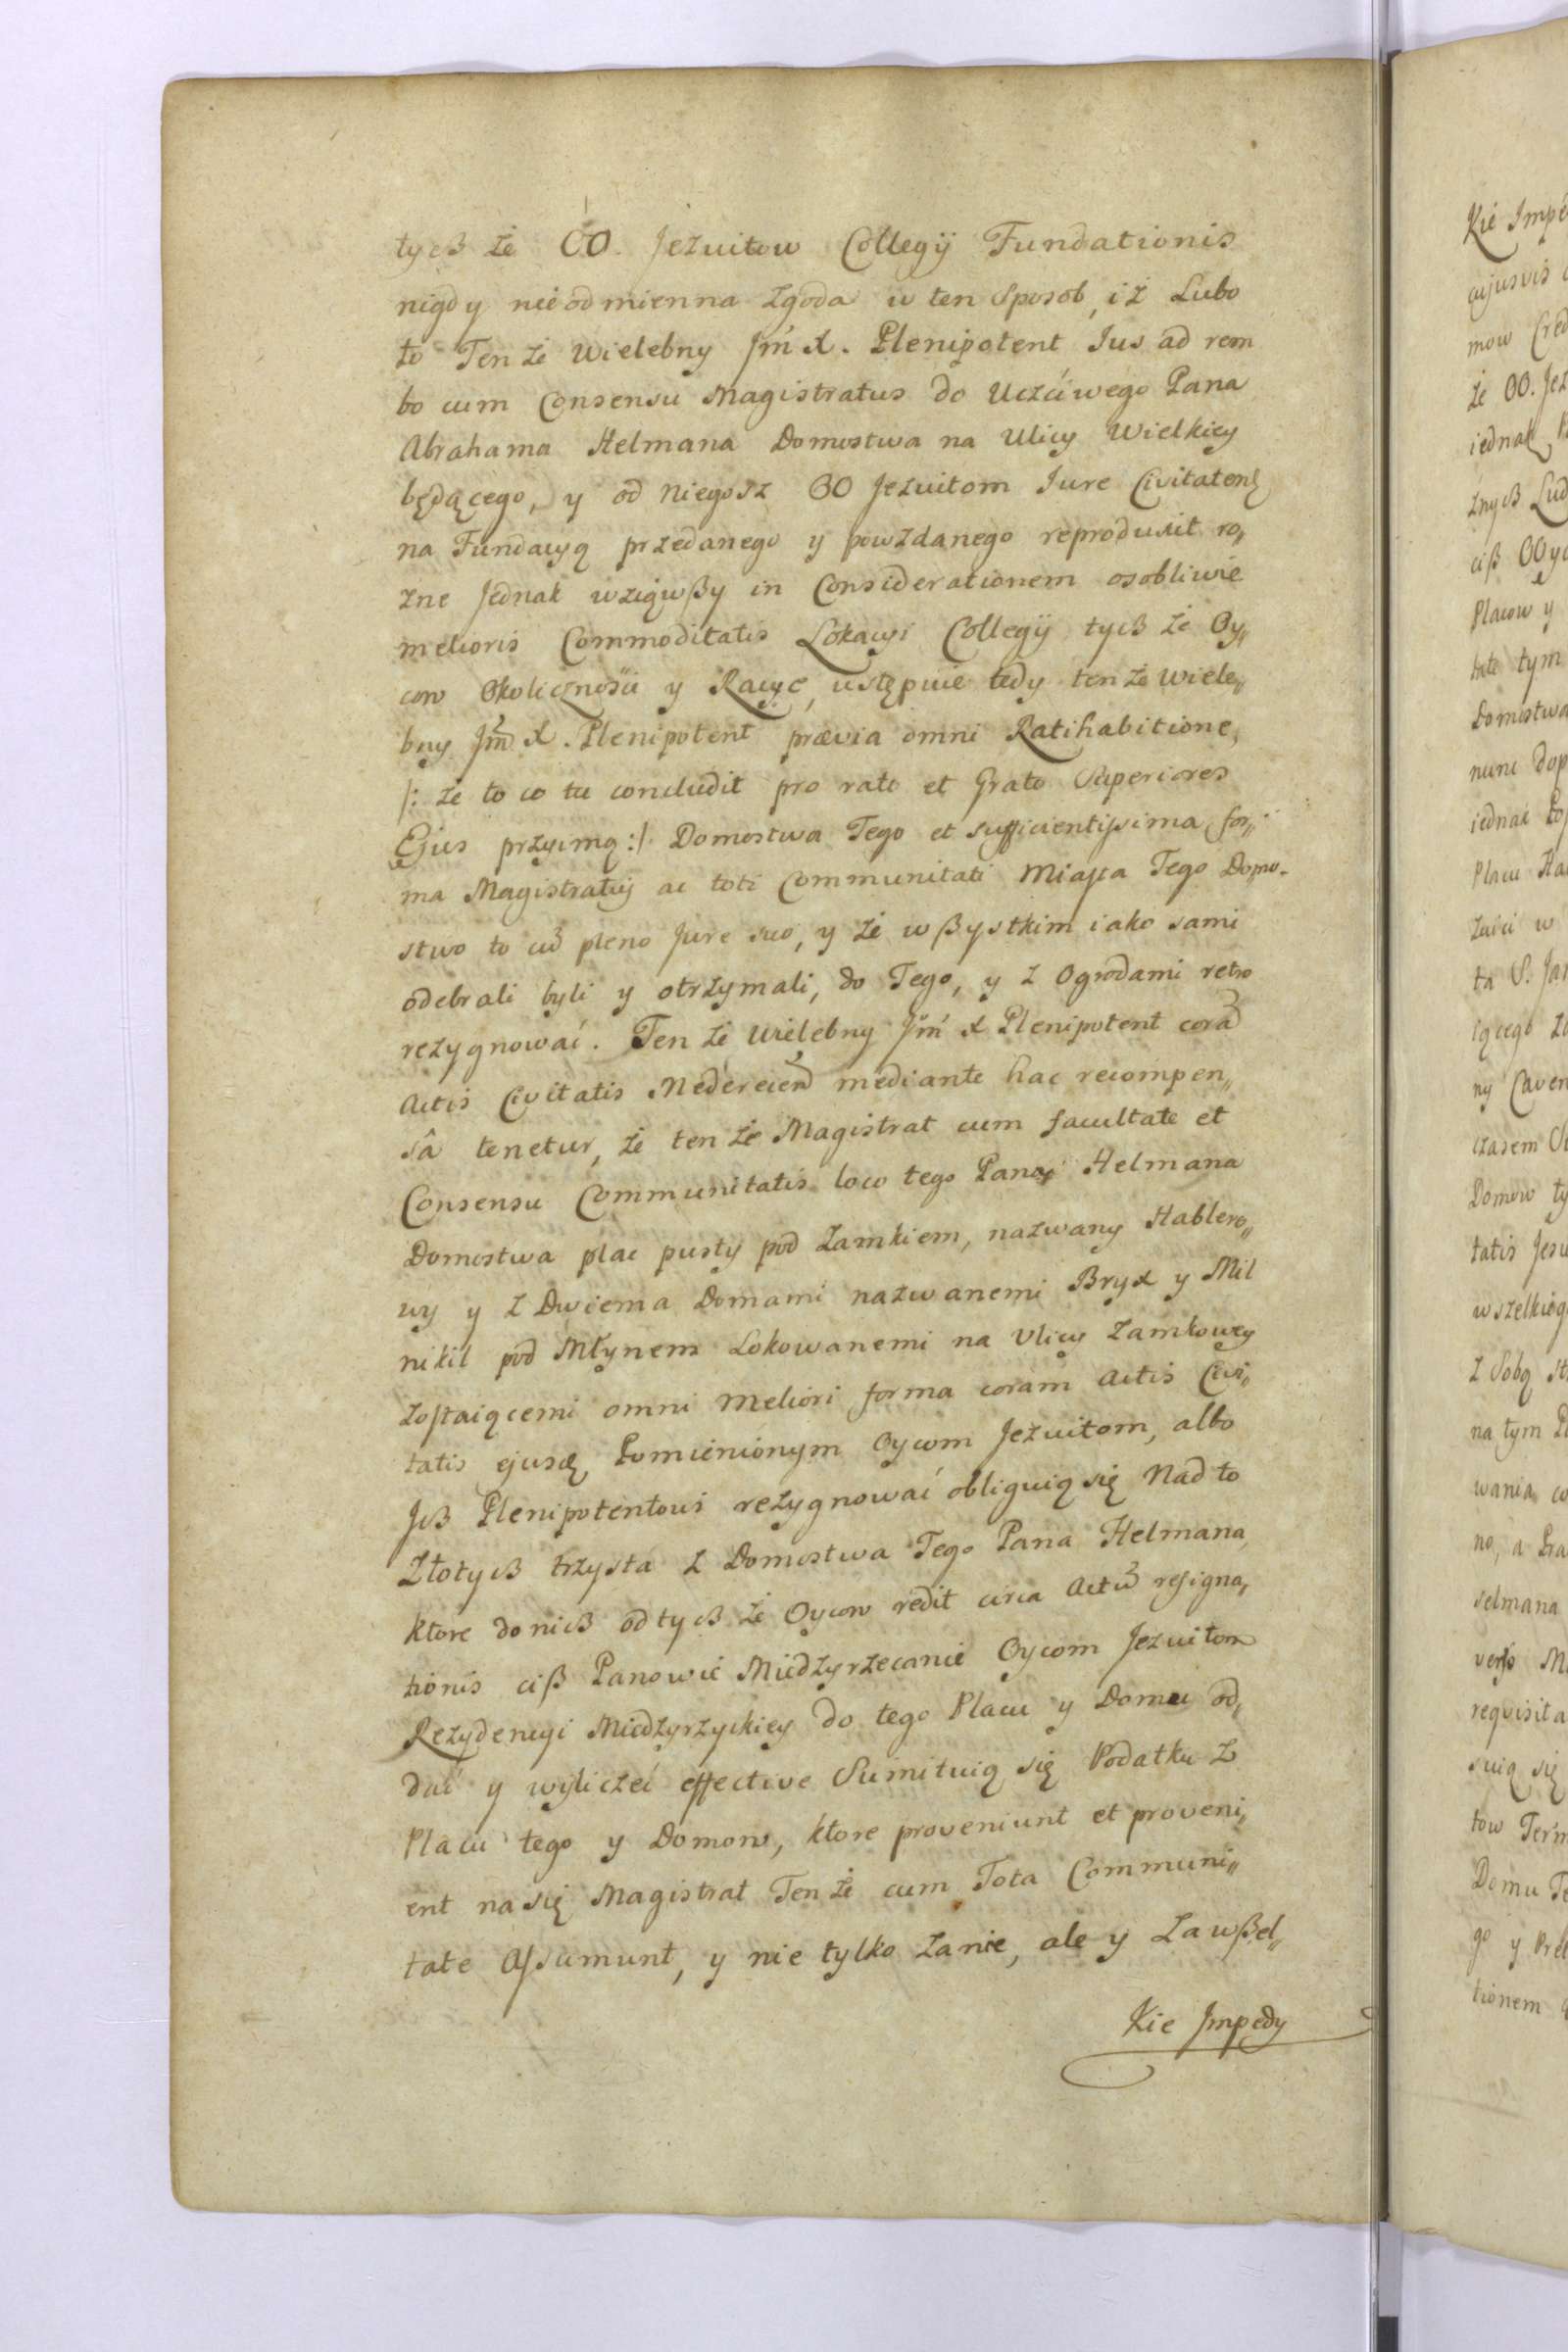 tych że OO. Jezuitow Collegij Fundationis
nigdy nieodmienna zgoda w ten Sposob, iż Lubo
to Ten że Wielebny Jm̃ X. Plenipotent Ius ad rem
bo cum Consensu Magistratus do Uczciwego Pana
Abrahama Helmana Domostwa na Ulicy Wielkiey
będącego, y od Niegosz OO Jezuitom Iure Civitatenß
na Fundacyą przedanego y powzdanego reproduxit ro„
zne Jednak wziąwßy in Considerationem osobliwie
melioris Commoditatis Lokacyi Collegij tych że Oy„
cow Okoliczności y Racye, ustępuie tedy ten że Wiele„
bny Jm̃ X. Plenipotent prævia omni Ratihabitione,
/: że to co tu concludit pro rato et Grato Superiores
Ejus przyimą :/ Domostwa Tego et sufficientissima for„
ma Magistratuj ac toti Communitati Miasta Tego Domo-
stwo to cũ pleno Jure suo, y że wßystkim iako sami
odebrali byli y otrzymali, do Tego, y z Ogrodami retro
rezygnować. Ten że Wielebny Jm̃ X Plenipotent corã
Actis Civitatis Mederecen̄ mediante hac recompen„
sâ tenetur, że ten że Magistrat cum facultate et
Consensu Communitatis loco tego Pana Helmana
Domostwa plac pusty pod Zamkiem, nazwany Hablero„
wy y z Dwiema Domami nazwanemi Bryx y Mil
nikil pod Młynem Lokowanemi na Ulicy Zamkowey
zostaiącemi omni meliori forma coram Actis Civi„
tatis ejusđ, Pomienionym Oycom Jezuitom, albo
Jch Plenipotentowi rezygnować obliguią się Nad to
Złotych trzysta z Domostwa Tego Pana Helmana,
ktore do nich od tych że Oycow redit circa Actũ resigna„
tionis ciß Panowie Miedzyrzecanie Oycom Jezuitom
Rezydencyi Miedzyrzyckiey do tego Placu y Domu od„
dać y wyliczeć effective Sumituią się Podatku z
Placu tego y Domow, ktore proveniunt et proveni„
ent na się Magistrat Ten że cum Tota Communi„
tate Assumunt, y nie tylko zanie, ale y Zawßel„
Kie Jmpedy